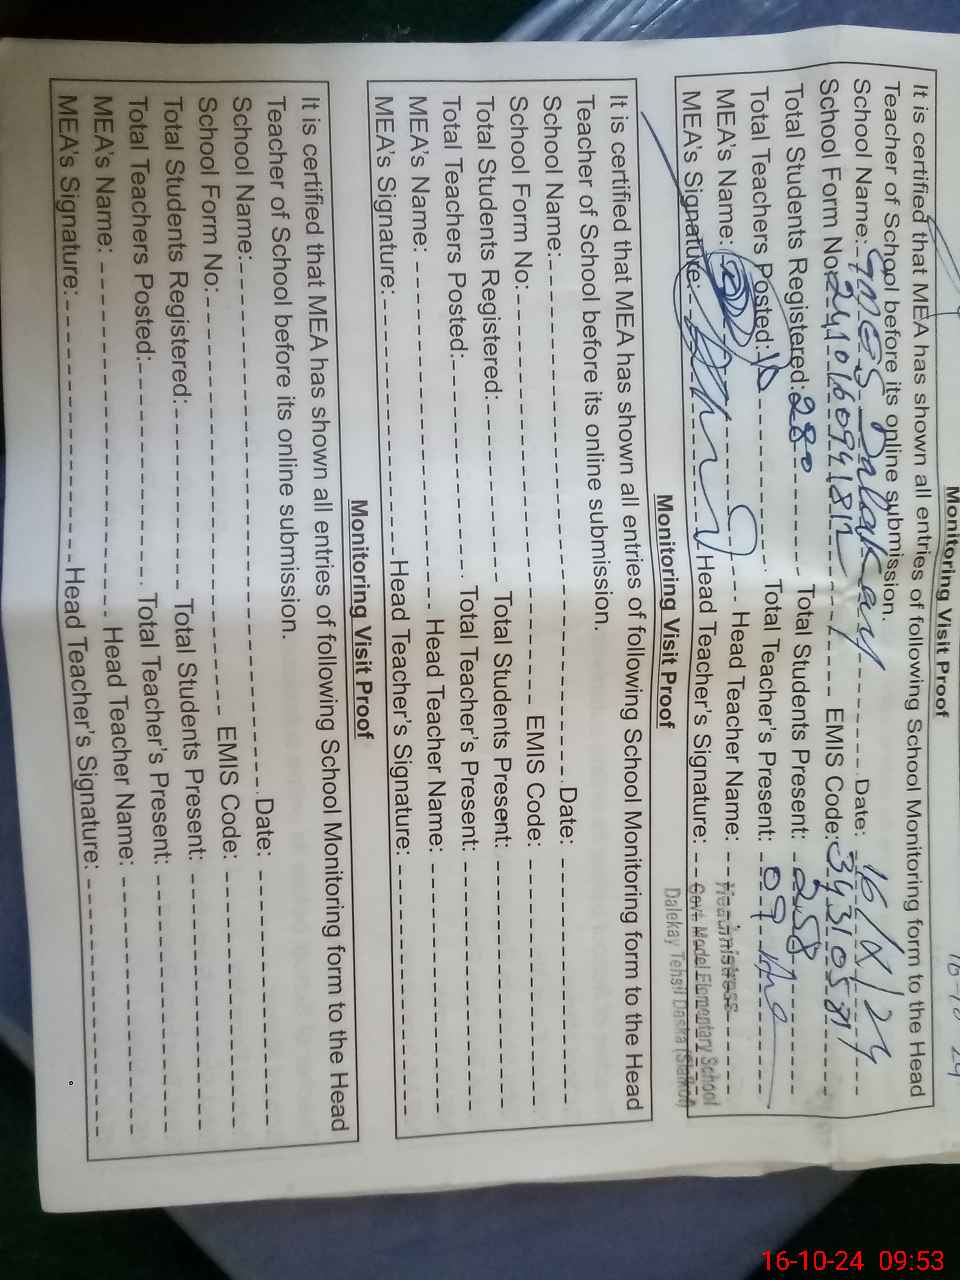 Monitoring Visit Proof
It is certified that MEA has shown all entries of following School Monitoring form to the Head
Teacher of School before its online submission.
School Name: GMES Dalakay Date: 16/X/24
School Form No: EMIS Code:
Total Students Registered: 280 Total Students Present: 258
Total Teachers Posted: 10 Total Teacher's Present: 09
MEA's Name: Head Teacher Name:
MEA's Signature: Head Teacher's Signature:
Headmistress
Govt. Model Elementary School
Dalekay Tehsil Daska (Sialkot)
Monitoring Visit Proof
It is certified that MEA has shown all entries of following School Monitoring form to the Head
Teacher of School before its online submission.
School Name: Date:
School Form No: EMIS Code:
Total Students Registered: Total Students Present:
Total Teachers Posted: Total Teacher's Present:
MEA's Name: Head Teacher Name:
MEA's Signature: Head Teacher's Signature:
Monitoring Visit Proof
It is certified that MEA has shown all entries of following School Monitoring form to the Head
Teacher of School before its online submission.
School Name: Date:
School Form No: EMIS Code:
Total Students Registered: Total Students Present:
Total Teachers Posted: Total Teacher's Present:
MEA's Name: Head Teacher Name:
MEA's Signature: Head Teacher's Signature:
16-10-24 09:53